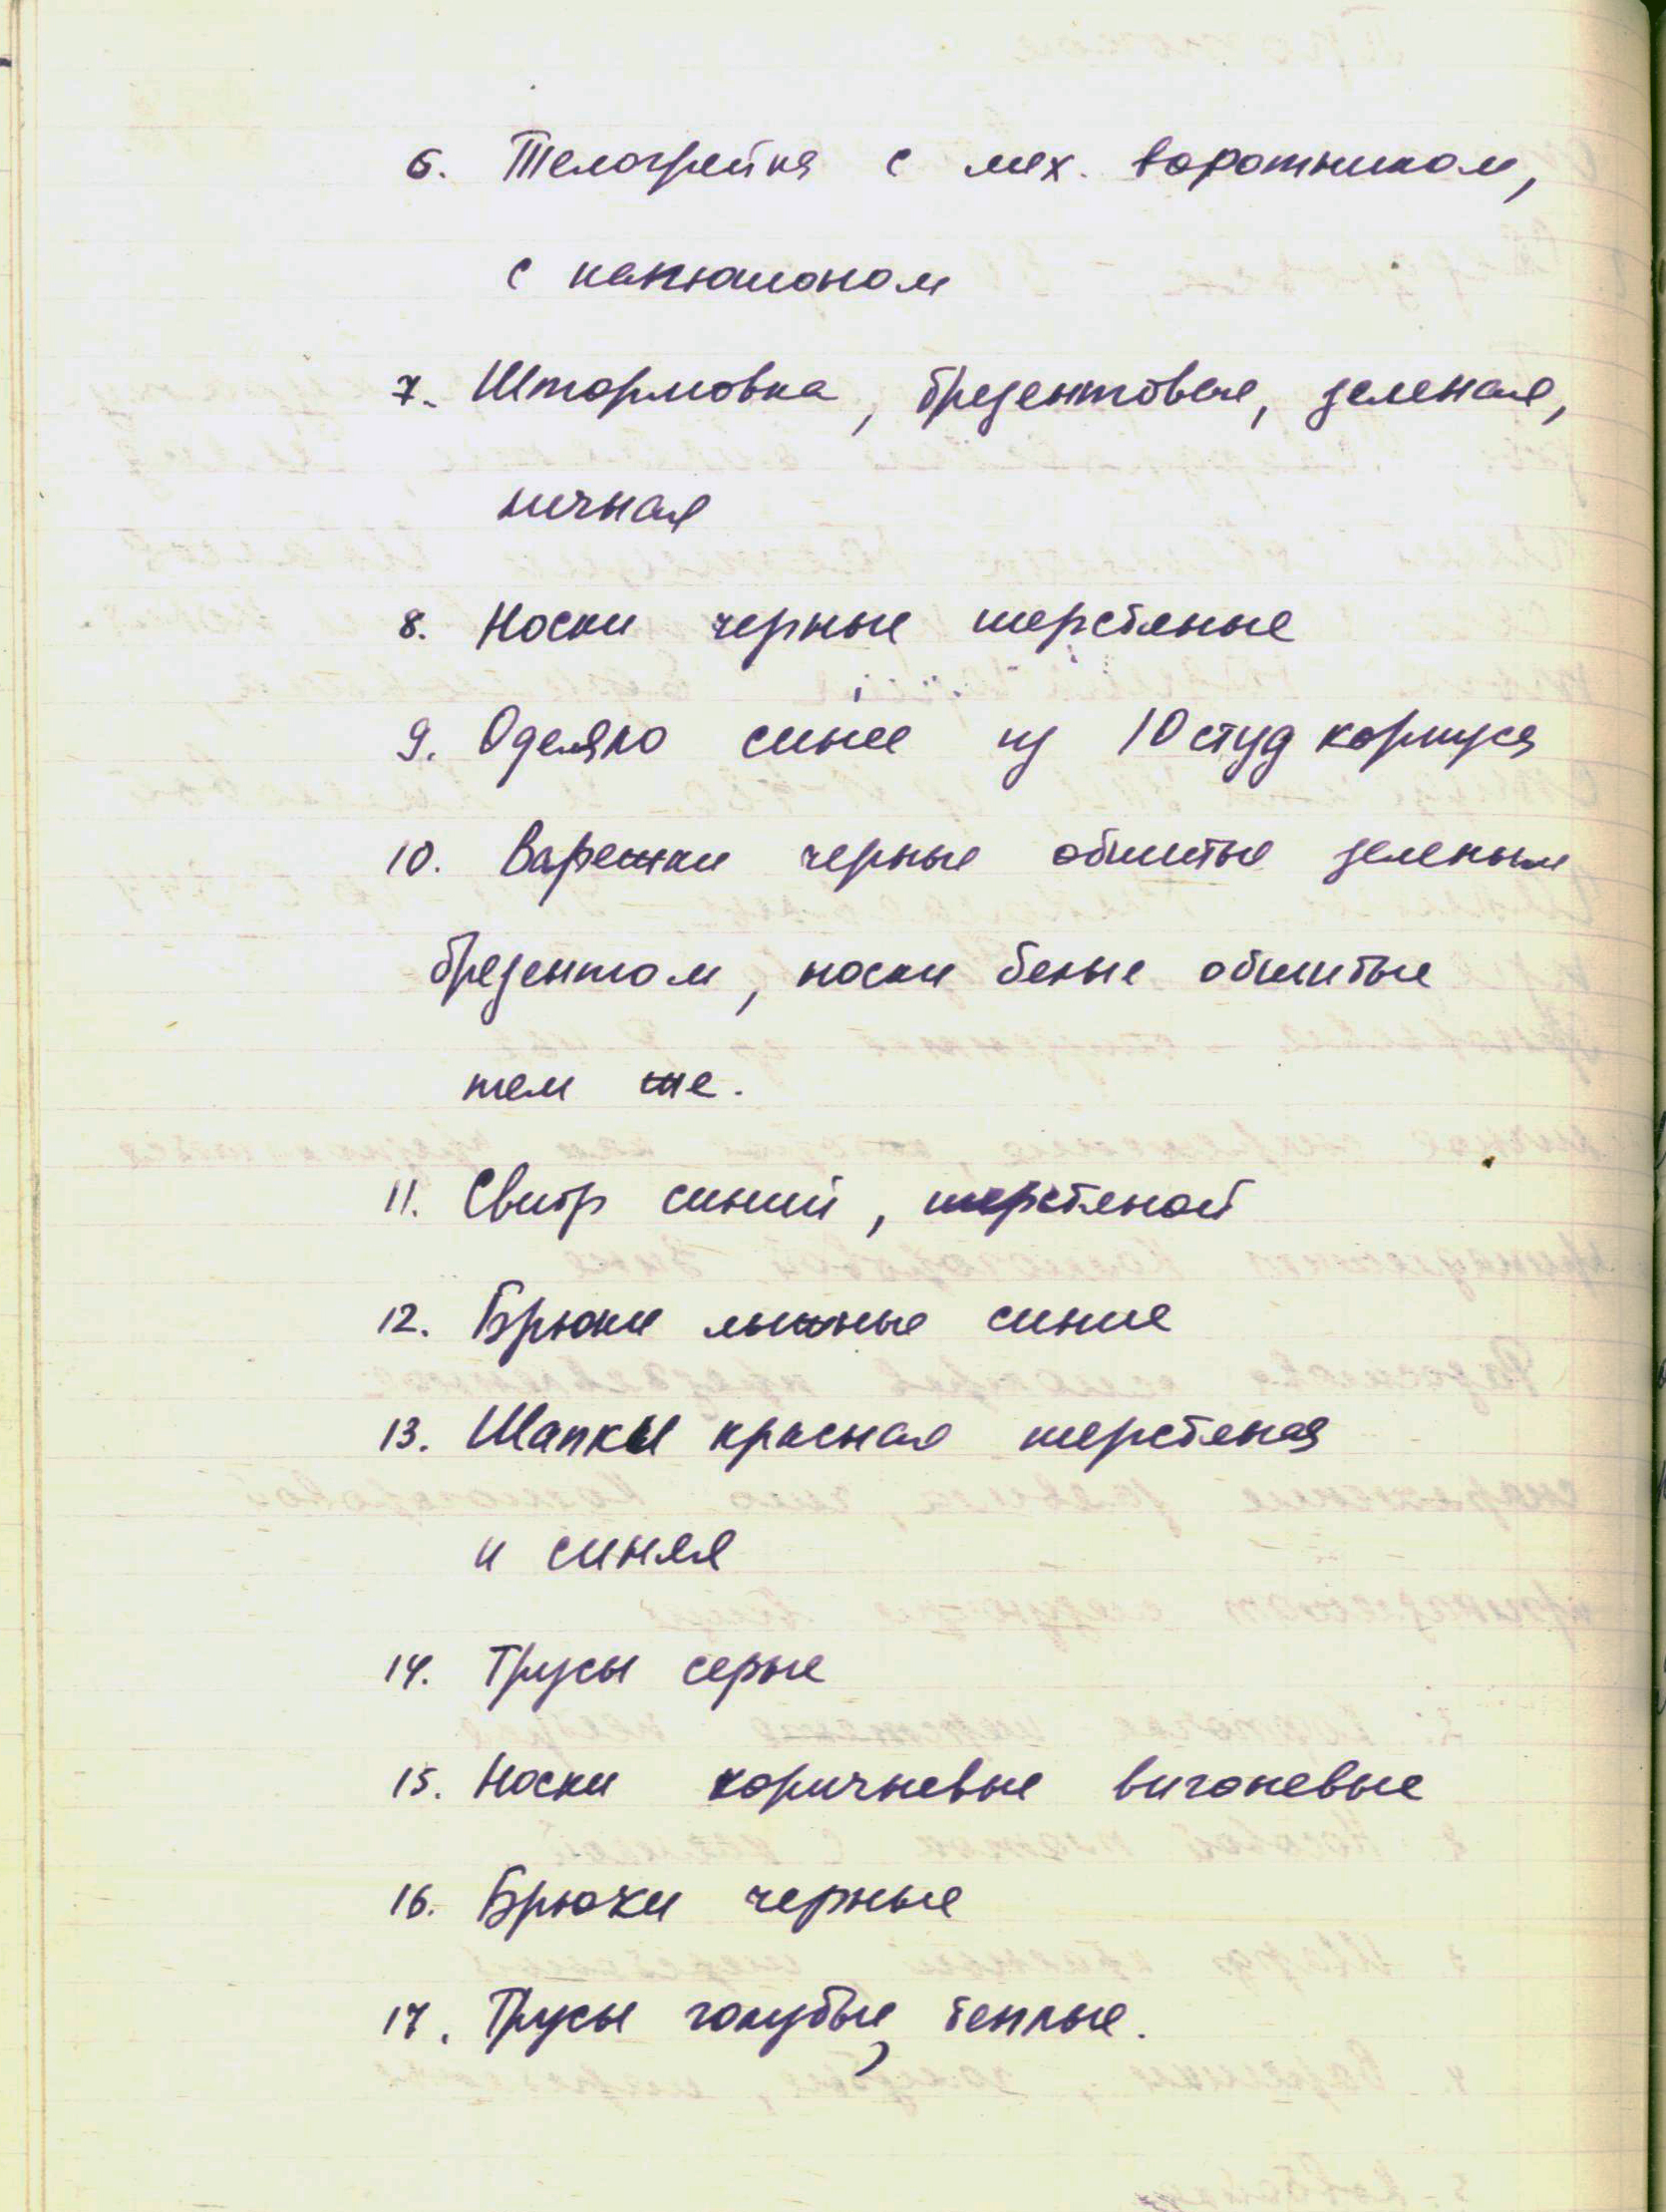 6. Телогрейка с мех. воротником,
с капюшоном
7. Штормовка, брезентовая, зеленая,
личная
8. Носки черные шерстяные
9. Одеяло синее из 10 студ корпуса
10. Варежки черные обшитые зеленым
брезентом, носки белые обшитые
тем же.
11. Свитр синий, шерстяной
12. Брюки лыжные синие
13. Шапкы красная шерстяная
и синяя
14. Трусы серые
15. Носки коричневые вигоневые
16. Брюки черные
17. Трусы голубые, теплые.